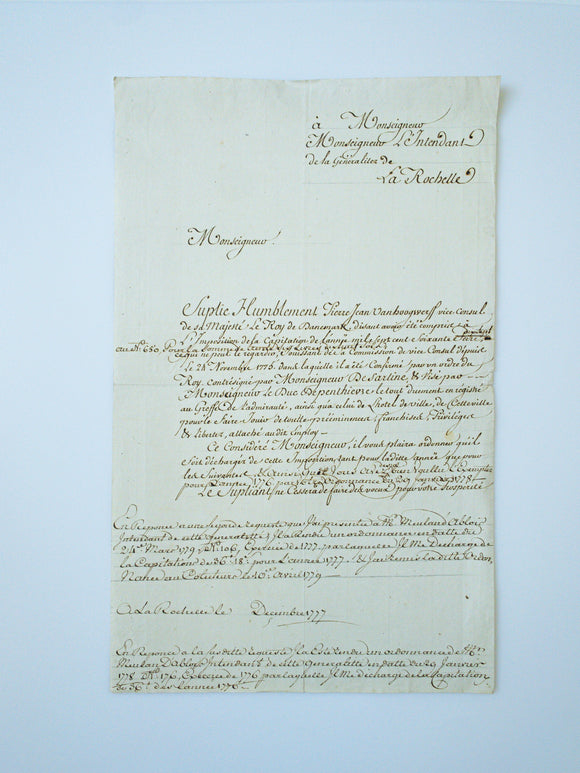 à Monseigneur
Monseigneur L'Intendant
de la Généralitez de
La Rochelle
Monseigneur.
Suplie Humblement Pierre Jean Vanhoogwerff vice Consul
de sa Majesté Le Roy de Danemark, disant avoir été comprit à
L'Imposition de la Capitation de L'année mil sept cent Soixante Seize
au No. 650 Pour la Somme de trente
ce qui ne peut le regarder, Jouissant de la Commission de vice Consul depuis
le 24 Novembre 1775. dans laquelle il a été Confirmé par un ordre du
Roy contresigné par Monseigneur De Sartine, & Visé par
Monseigneur Le Duc De penthievre le tout duement enregistré
au Greffe de L'admirauté, ainsi qu'a celui de L'hotel de ville, de Cette ville
pour le faire Jouir de toutte prééminences, franchises, Privileges
& Libertez, attaché audit Employ
Ce Considéré Monseigneur, il vous plaira ordonner qu'il
Soit déchargé de cette Imposition, tant pour laditte année que pour
les Suivantes
pour L'année 1776 par Ordonnance du 29 Janvier 1778
Le Supliant ne Cessera de faire des voeux pour votre prosperité
En Reponce a une Segonde requeste que J'ai présenté a Mr. Meuland d'Ablois
Intendant de cette Generalitté Il a Rendu un ordonnance en datte du
24 Mars 1779 No. 106, Exercice de 1777. par laquelle Il Me Decharge de
la Capitation de 36 18 pour L'année 1777. & J'ai Remis la ditte Ordon
Nance au Colecteur le 10 Avril 1779
A La Rochelle le Decembre 1777
En Reponce a la susditte requeste Il a Esté rendu un ordonnance de Mr.
Meulan D'Ablois Intendant de cette Generalitte en datte du 29 Janvier
1778 No. 176, Exercice de 1776 par laquelle Il Me decharge de la Capitation
de 36 de L'année 1776